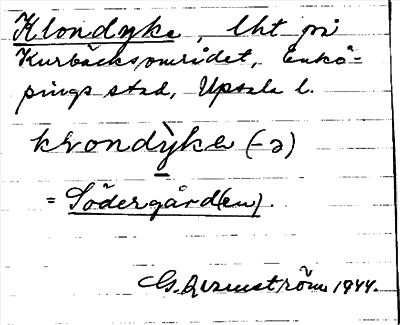 Klondyke, lht på
Kurbäcksområdet, Enkö-
pings stad, Upsala l.
klondỳkə (-ə)
= Södergård(en).
G. 1944.